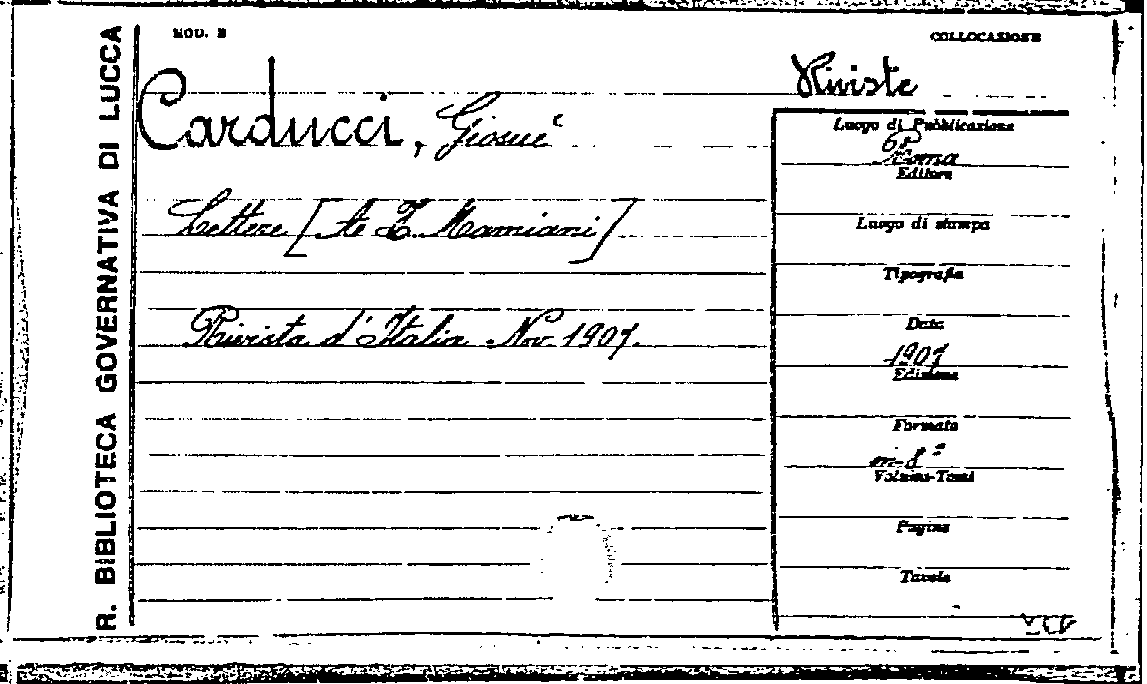 R. BIBLIOTECA GOVERNATIVA DI LUCCA
MOD. B
COLLOCAZIONE
Riviste
Carducci, Giosuè
Lettere [A T. Mamiani]
Rivista d'Italia Nov. 1907.
Luogo di Pubblicazione
Roma
Editore
Luogo di stampa
Tipografia
Data
1907
Edizione
Formato
in-8°
Volume-Tomi
Pagine
Tavole